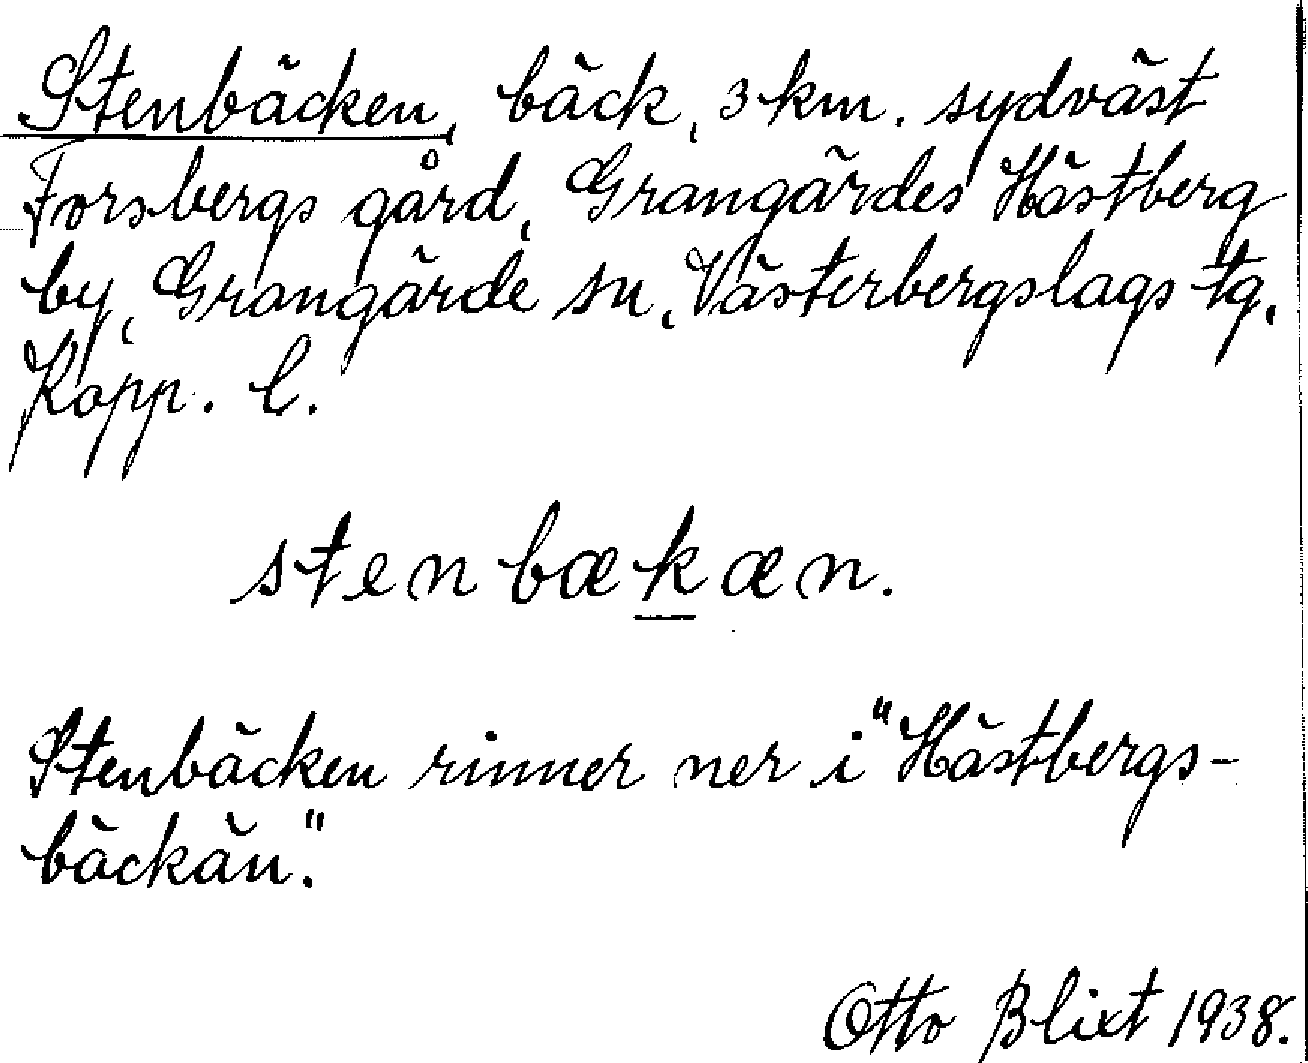 Stenbäcken, bäck, 3 km. sydväst
Forsbergs gård, Grangärdes Hästberg
by, Grangärde sn, Västerbergslags tg,
Kopp. l.
stenbækæn.
Stenbäcken rinner ner i "Hästbergs-
bäckän."
Otto Blixt 1938.